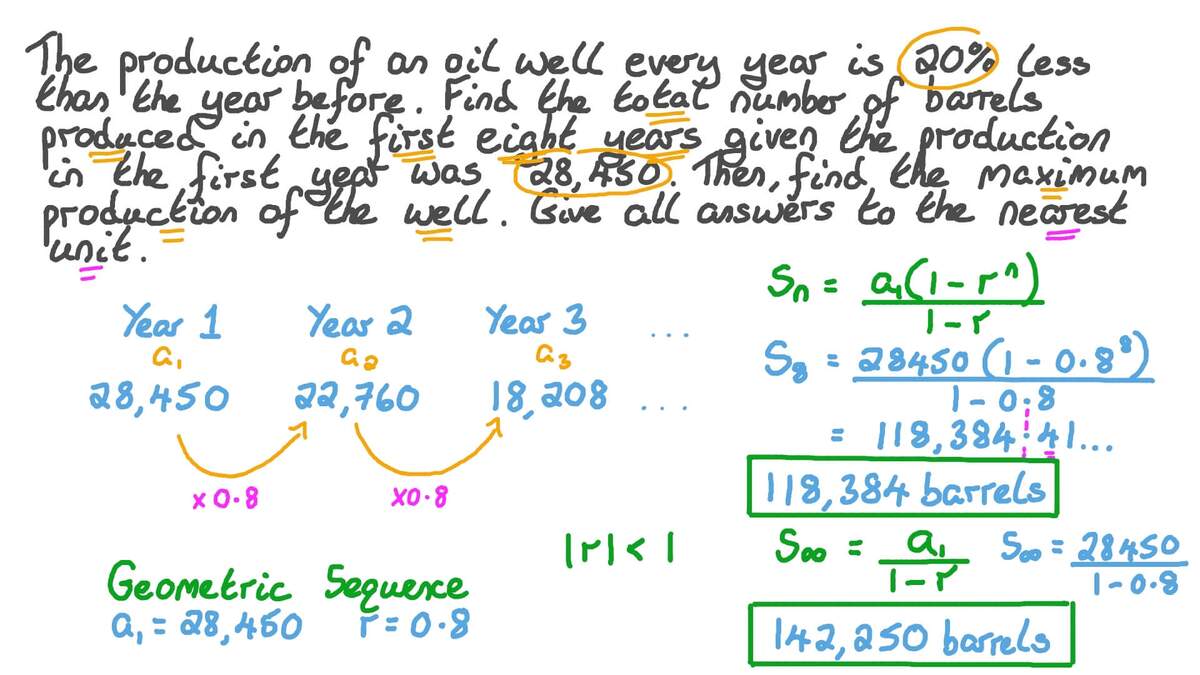 The production of an oil well every year is 20% less
than the year before. Find the total number of barrels
produced in the first eight years given the production
in the first year was 28,450. Then, find the maximum
production of the well. Give all answers to the nearest
unit.
Year 1 Year 2 Year 3 ...
a₁ a₂ a₃
28,450 22,760 18,208 ...
×0.8 ×0.8
Geometric Sequence
a₁ = 28,450 r = 0.8
Sₙ = a₁(1 - rⁿ) / 1 - r
S₈ = 28450(1 - 0.8⁸) / 1 - 0.8
= 118,384.41...
118,384 barrels
|r| < 1
S∞ = a₁ / 1 - r S∞ = 28450 / 1 - 0.8
142,250 barrels